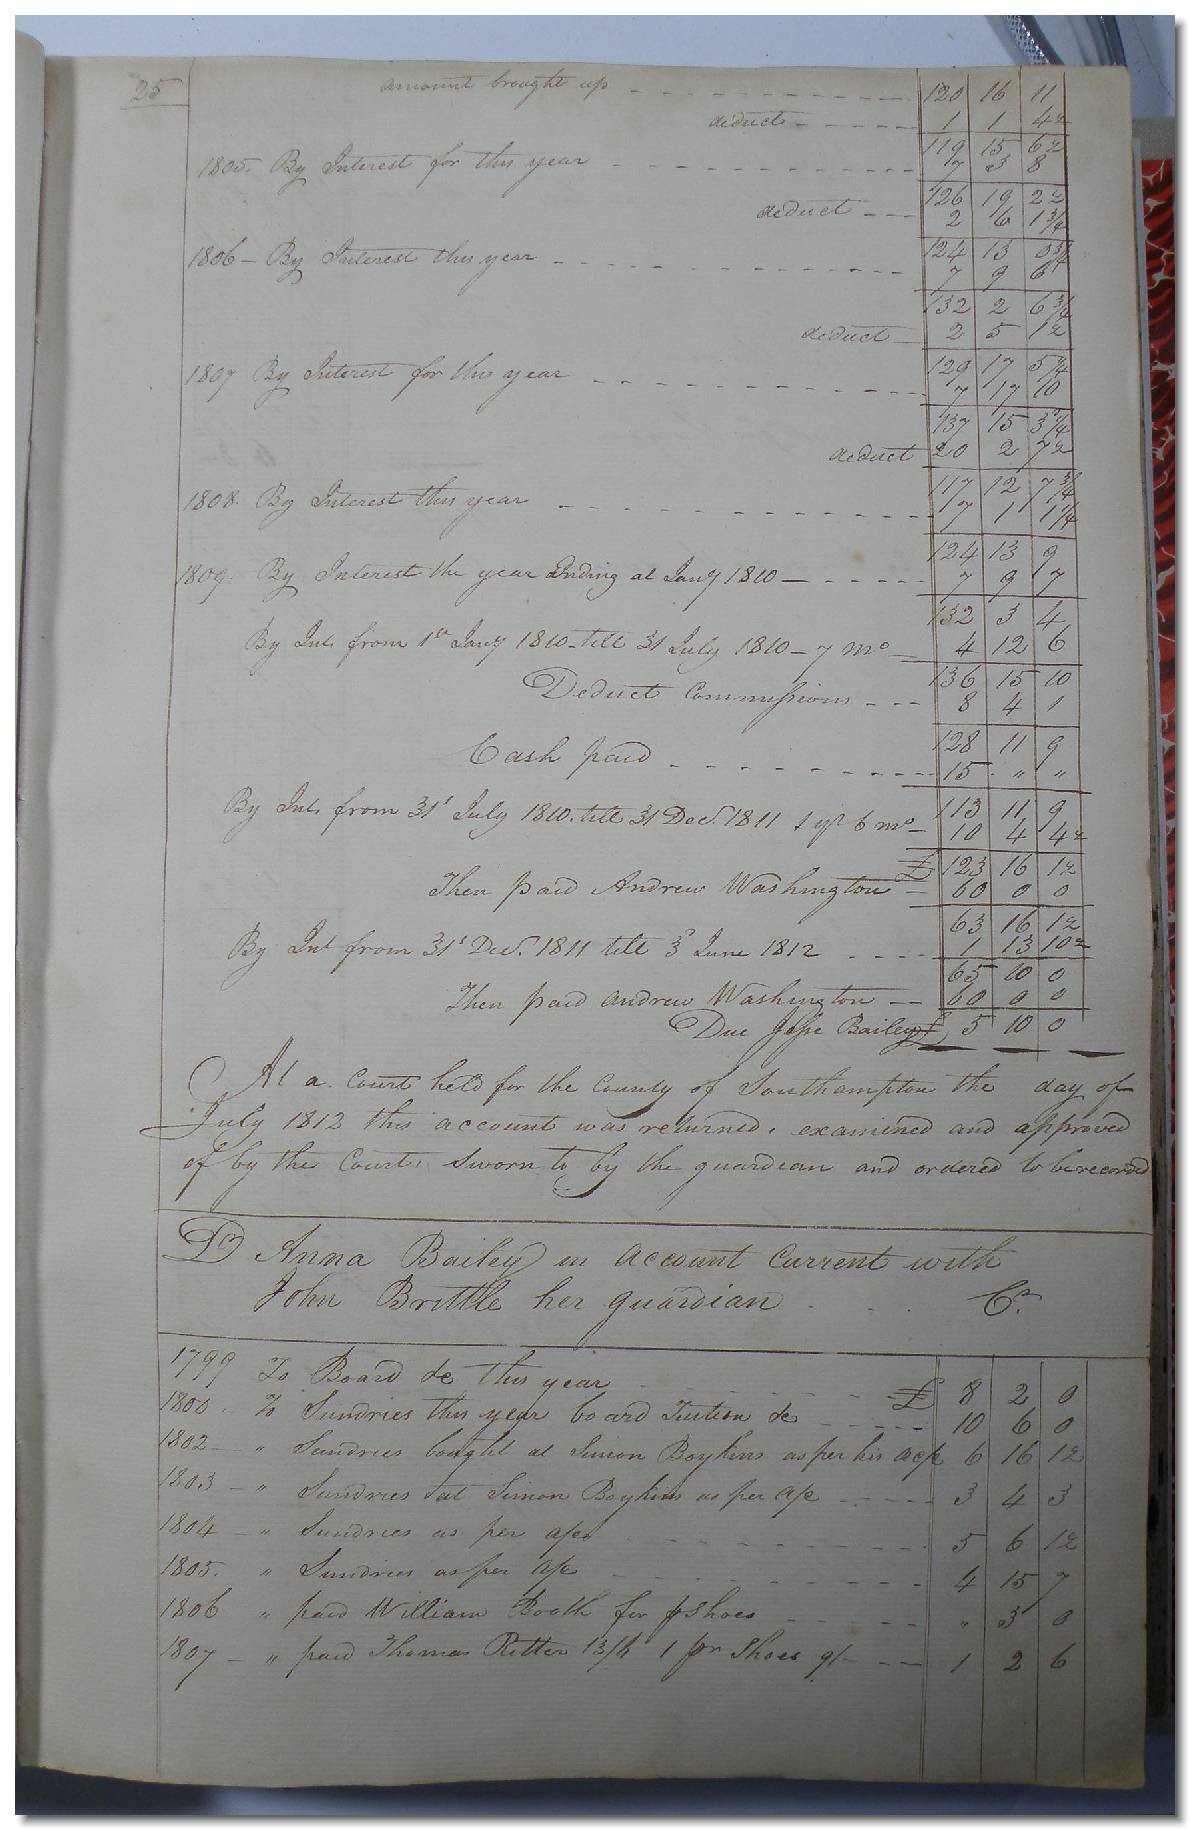 25
amount brought up 120 16 11
deduct 1 1 4½
119 15 6½
1805. By Interest for this year 7 3 8
126 19 2½
deduct 2 6 1¾
124 13 0¾
1806 - By Interest this year 7 9 6
132 2 6¾
deduct 2 5 1½
129 17 5¼
1807 By Interest for this year 7 17 10
137 15 3¼
deduct 20 2 7½
117 12 7¾
1808. By Interest this year 7 1 1¼
124 13 9
1809. By Interest the year Ending at Jany 1810 7 9 7
132 3 4
By Int. from 1st Jany 1810 till 31 July 1810 - 7 mo 4 12 6
136 15 10
Deduct Commissions 8 4 1
128 11 9
Cash paid 15 " "
113 11 9
By Int. from 31t July 1810 till 31 Decr. 1811 1 yr 6 mo 10 4 4½
£ 123 16 1½
Then paid Andrew Washington 60 0 0
63 16 1½
By Int from 31t Decr. 1811 till 3d June 1812 1 13 10½
65 10 0
Then paid Andrew Washington 60 0 0
Due Jesse Bailey £ 5 10 0
At a Court held for the County of Southampton the day of
July 1812 this account was returned, examined and approved
of by the Court, sworn to by the guardian and ordered to be recorded
Dr Anna Bailey in account Current with
John Brittle her guardian Cr.
1799 To Board &c this year £ 8 2 0
1800. To Sundries this year board Tuition &c 10 6 0
1802 - " Sundries bought at Simon Boykins as per his acpt 6 16 1½
1803 - " Sundries at Simon Boykins as per a/c 3 4 3
1804 - " Sundries as per a/c 5 6 1½
1805. " Sundries as per a/c 4 15 7
1806 " paid William Booth for pr Shoes " 3 0
1807 - " paid Thomas Ritter 13/6 1 pr Shoes 9/- 1 2 6